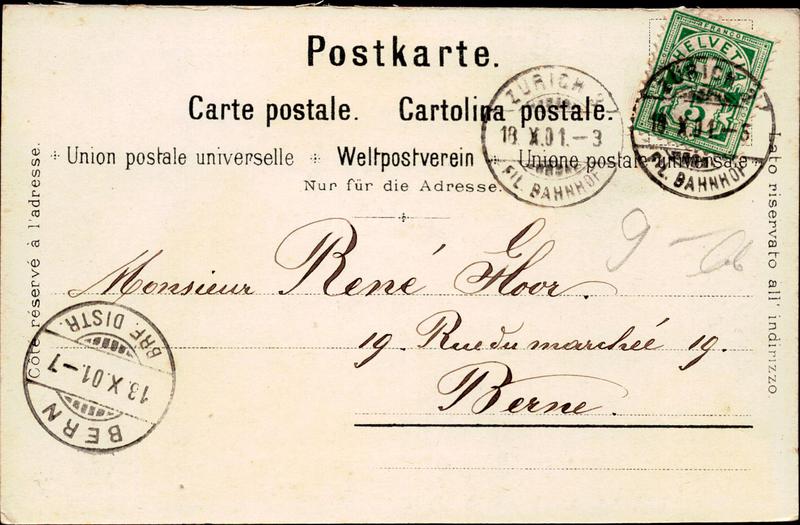 Postkarte.
Carte postale. Cartolina postale.
Union postale universelle Weltpostverein Unione postale universale
Nur für die Adresse.
FRANCO
HELVETIA
5
ZÜRICH
18.X.01.-3
FIL. BAHNHOF
ZÜRICH
18.X.01.-3
FIL. BAHNHOF
Côté réservé à l'adresse.
Lato riservato all' indirizzo
Monsieur René Floor.
19. Rue du marchéé 19.
Berne.
BRF. DISTR.
18.X.01.-7
BERN